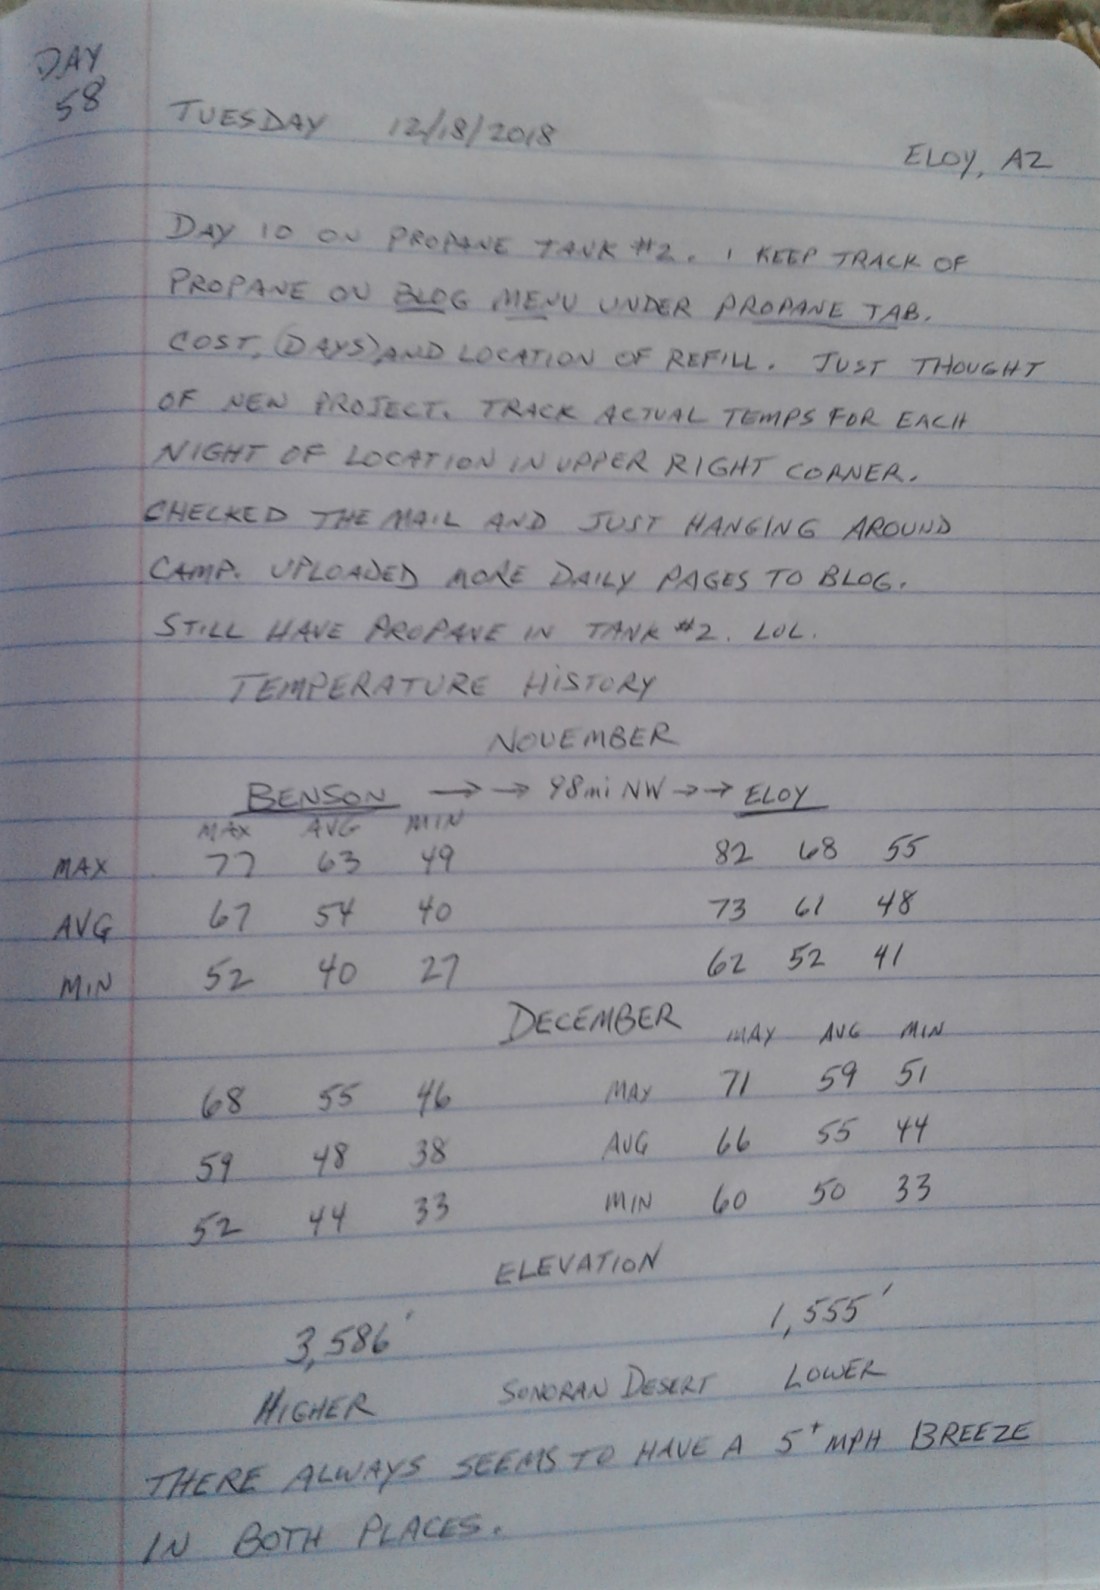 DAY
58
TUESDAY 12/18/2018
ELOY, AZ
DAY 10 ON PROPANE TANK #2. I KEEP TRACK OF
PROPANE ON BLOG MENU UNDER PROPANE TAB.
COST, (DAYS) AND LOCATION OF REFILL. JUST THOUGHT
OF NEW PROJECT. TRACK ACTUAL TEMPS FOR EACH
NIGHT OF LOCATION IN UPPER RIGHT CORNER.
CHECKED THE MAIL AND JUST HANGING AROUND
CAMP. UPLOADED MORE DAILY PAGES TO BLOG.
STILL HAVE PROPANE IN TANK #2. LOL.
TEMPERATURE HISTORY
NOVEMBER
BENSON →→ 98mi NW →→ ELOY
MAX AVG MIN
MAX 77 63 49 82 68 55
AVG 67 54 40 73 61 48
MIN 52 40 27 62 52 41
DECEMBER MAX AVG MIN
68 55 46 MAX 71 59 51
59 48 38 AVG 66 55 44
52 44 33 MIN 60 50 33
ELEVATION
3,586' 1,555'
HIGHER SONORAN DESERT LOWER
THERE ALWAYS SEEMS TO HAVE A 5+ MPH BREEZE
IN BOTH PLACES.